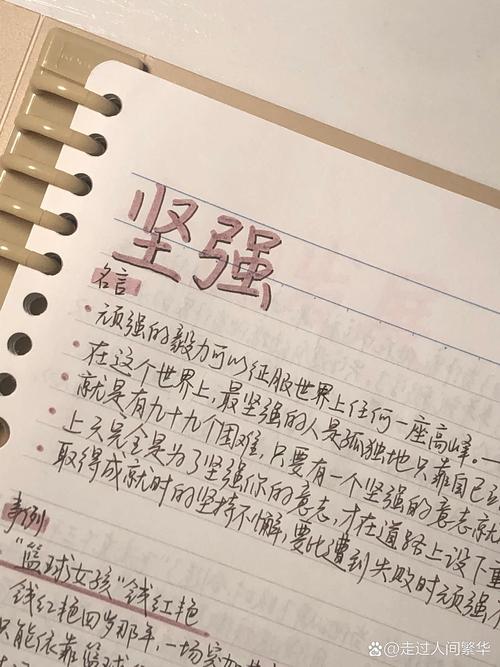 坚强
名言
·顽强的毅力可以征服世界上任何一座高峰。——
·在这个世界上,最坚强的人是孤独地只靠自己
就是有九十九个困难,只要有一个坚强的意志就
·上天完全是为了坚强你的意志,才在道路上设下重
·取得成就时的坚持不懈,要比遭到失败时顽强不
事例
"篮球女孩"钱红艳
钱红艳四岁那年,一场
只能依靠篮球
@走过人间繁华